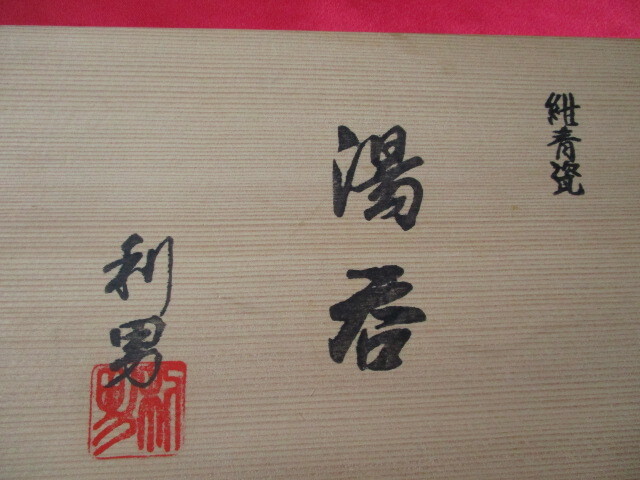 紺青瓷
湯呑
利男